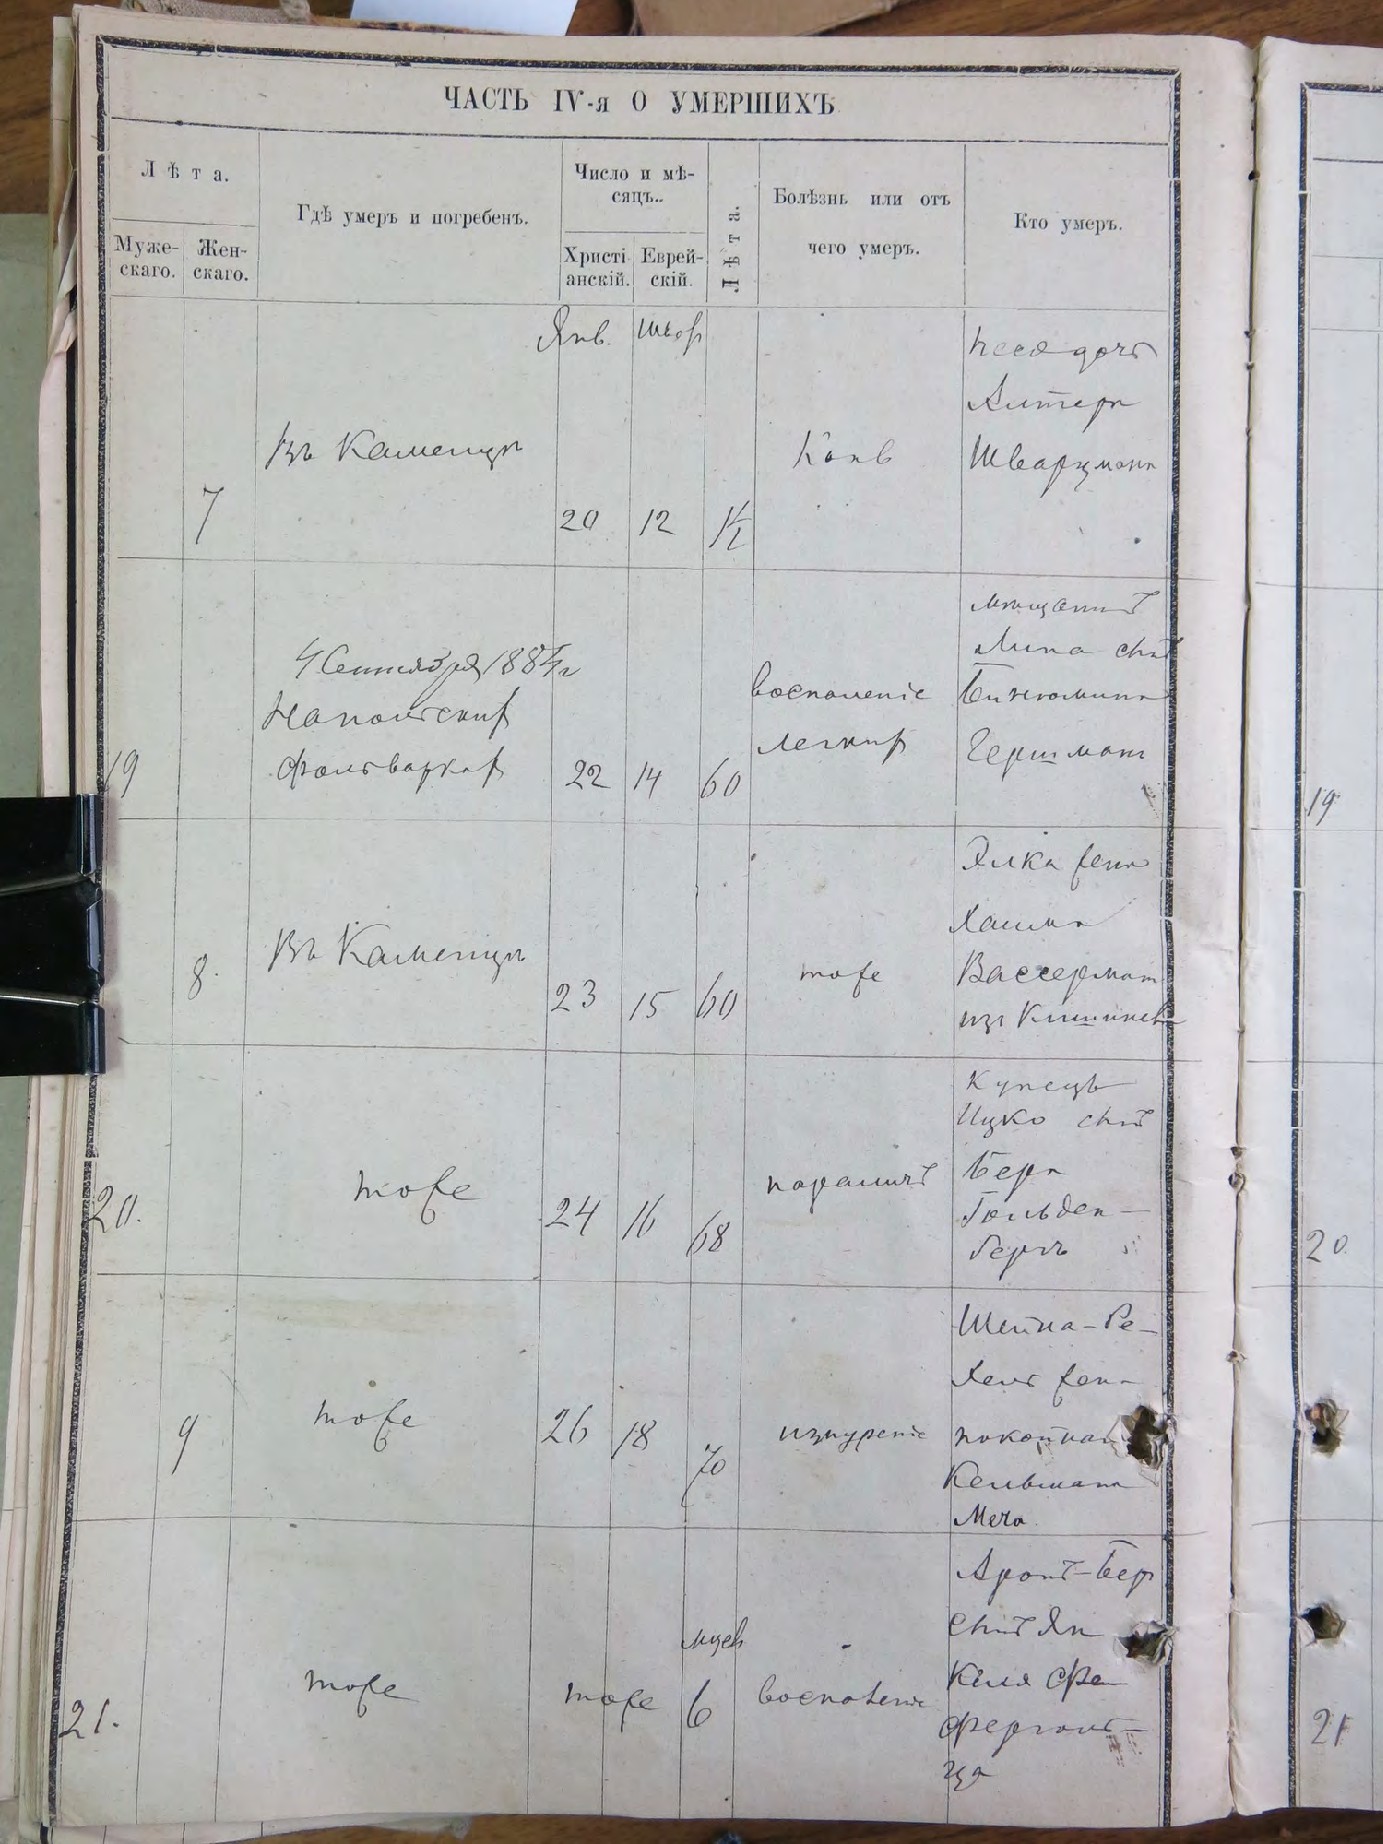 ЧАСТЬ IV-я О УМЕРШИХЪ
Лѣта.
Муже-
скаго.
Жен-
скаго.
Гдѣ умеръ и погребенъ.
Число и мѣ-
сяцъ.
Христі-
анскій.
Еврей-
скій.
Лѣта.
Болѣзнь или отъ
чего умеръ.
Кто умеръ.
Янв.
7
Въ Каменцѣ
20
12
1½
Песя дочь
Алтера
Шварцмана
19
4 Сентября 1884 г
Фольваркахъ
22
14
60
воспаленіе
легкихъ
мѣщанинъ
сынъ
Биньомина
Гершманъ
19
8.
Въ Каменцѣ
23
15
60
тоже
Элка жена
Хаима
Вассерманъ
изъ Кишинева
20.
тоже
24
16
68
параличъ
Купецъ
Ицко сынъ
Бера
Гольден-
бергъ
20.
9
тоже
26
18
70
изнуреніе
Шейна-Ре-
хель жена
покойнаго
Кельмана
21.
тоже
тоже
мцев
6
воспаленіе
Аронъ-Бер
сынъ Ян
келя
21